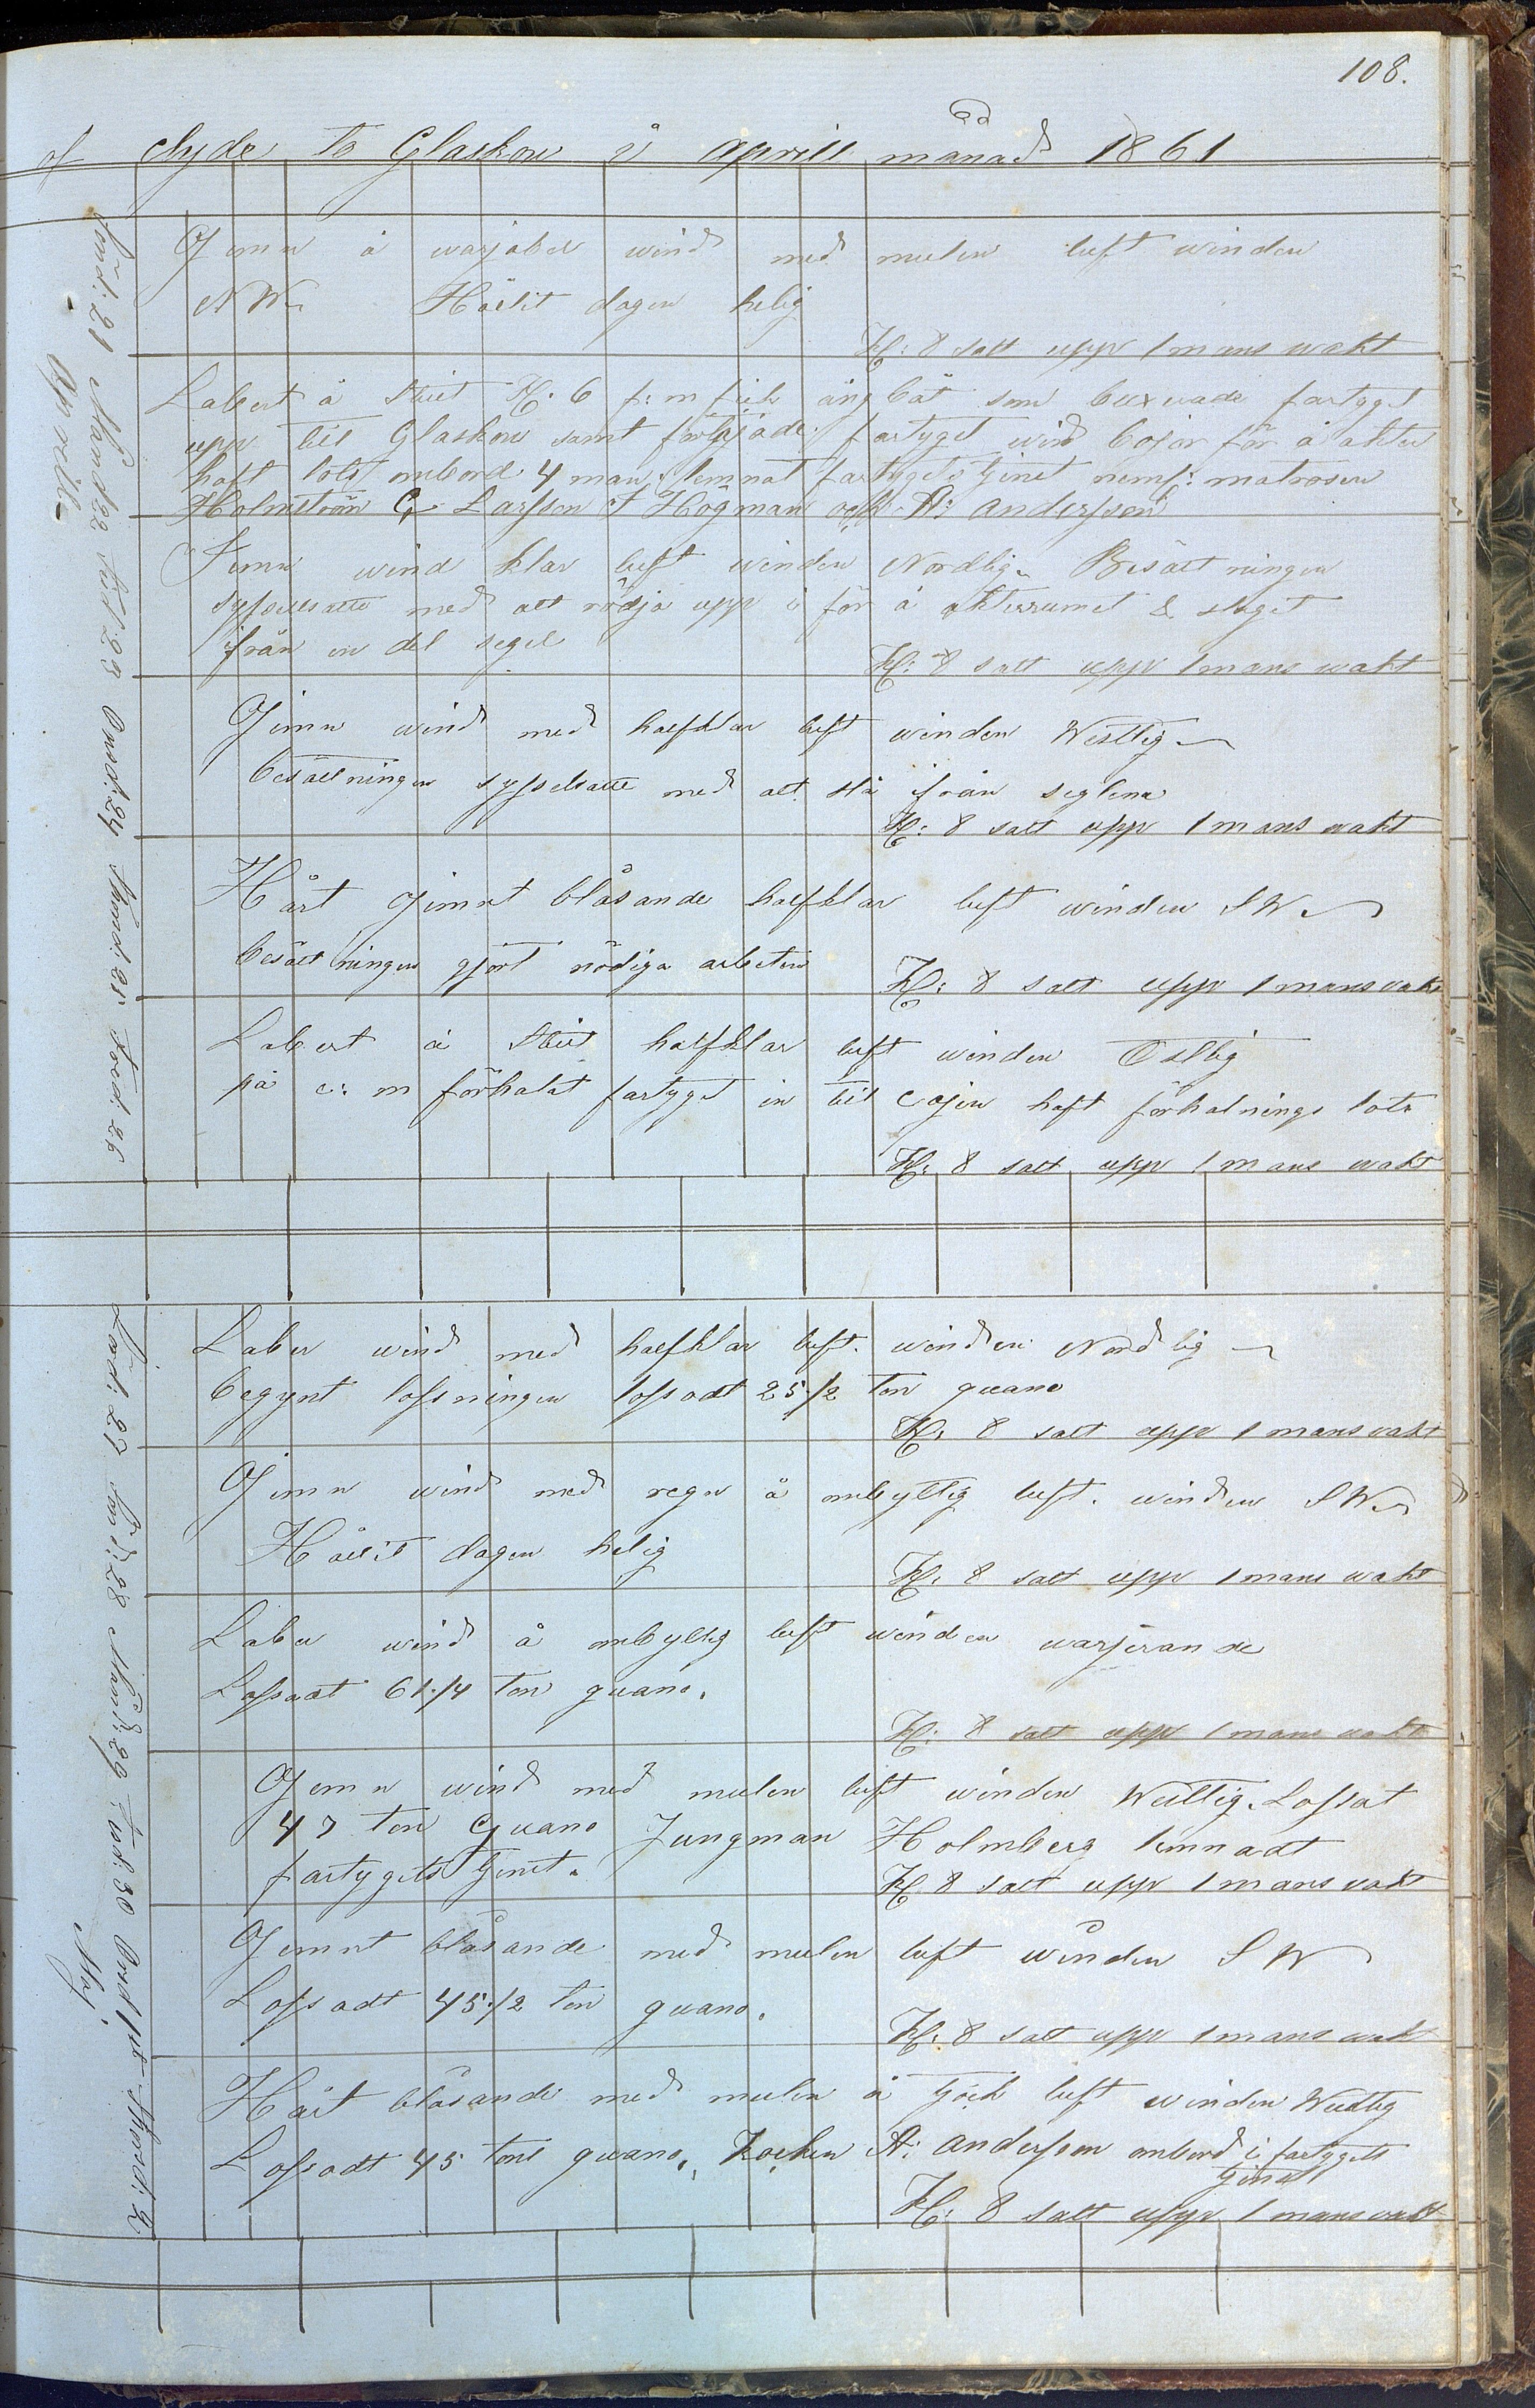 108.
of clyde to Glaskow i aprill månad 1861
Sönd: 21 Månd: 22 Tisd: 23 Onsd: 24 Thorsd: 25 Fred: 26
Aprill
Jemn å warjabel wind med mulen luft winden
NW. Hållit dagen helig
Kl: 8 satt upp 1 mans wakt
Labert å stilt Kl: 6 f: m fick ång båt som buxerade fartyget
upp till Glaskow samt förtøjade fartyget wid bojar för å akter
haft lots ombord 4 man lemnat fartygets tjenst neml: matrosen
Holmström G Larsson F Högman och A: Andersson
Jemn wind klar luft winden Nordlig. Besättningen
sysselsatte med att rödja upp i för å akterrumet & slaget
ifrån en del segel
Kl: 8 satt upp 1 mans wakt
Jemn wind med halfklar luft winden Westlig
besättningen sysselsatte med att slå ifrån seglena
Kl: 8 satt upp 1 mans wakt
Hårt jemnt blåsande halfklar luft winden SW
besättningen gjort nödiga arbeten
Kl: 8 satt upp 1 mans wakt
Labert å stilt halfklar luft winden Ostlig
på e: m förhalat fartyget in till cajen haft förhalnings lots
Kl: 8 satt upp 1 mans wakt
Lörd: 27 Sönd: 28 Månd: 29 Tisd: 30 Onsd 1 Thorsd: 2
Maj
Laber wind med halfklar luft. winden Nordlig
begynt lossningen lossadt 25 1/2 ton guano
Kl: 8 satt upp 1 mans wakt
Jemn wind med regn å ombytlig luft. winden SW
Hållit dagen helig
Kl: 8 satt upp 1 mans wakt
Laber wind å ombytlig luft winden warjerande
Lossadt 61 1/4 ton guano.
Kl: 8 satt upp 1 mans wakt
Jemn wind med mulen luft winden Westlig. Lossat
47 ton Guano Jungman Holmberg lemnadt
fartygets tjenst.
Kl: 8 satt upp 1 mans wakt
Jemnt blåsande med mulen luft winden SW
Lossadt 45 1/2 ton guano.
Kl: 8 satt upp 1 mans wakt
Hårt blåsande med mulen å tjock luft winden Westlig
Lossadt 45 tons guano. Kocken A: Andersson ombord i fartygets
tjenst
Kl: 8 satt upp 1 mans wakt